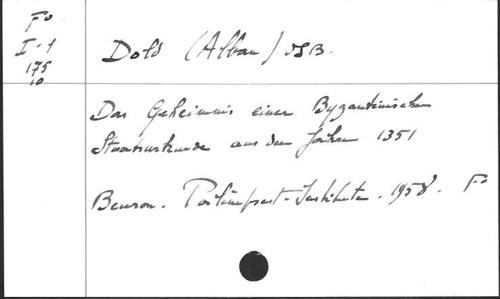 Fo
I-1
175
10
Dold (Alban) OSB.
Das Geheimnis einer Byzantinischen
Staatsurkunde aus dem Jahre 1351
Beuron. Palimpsest-Institute. 1958. Fo